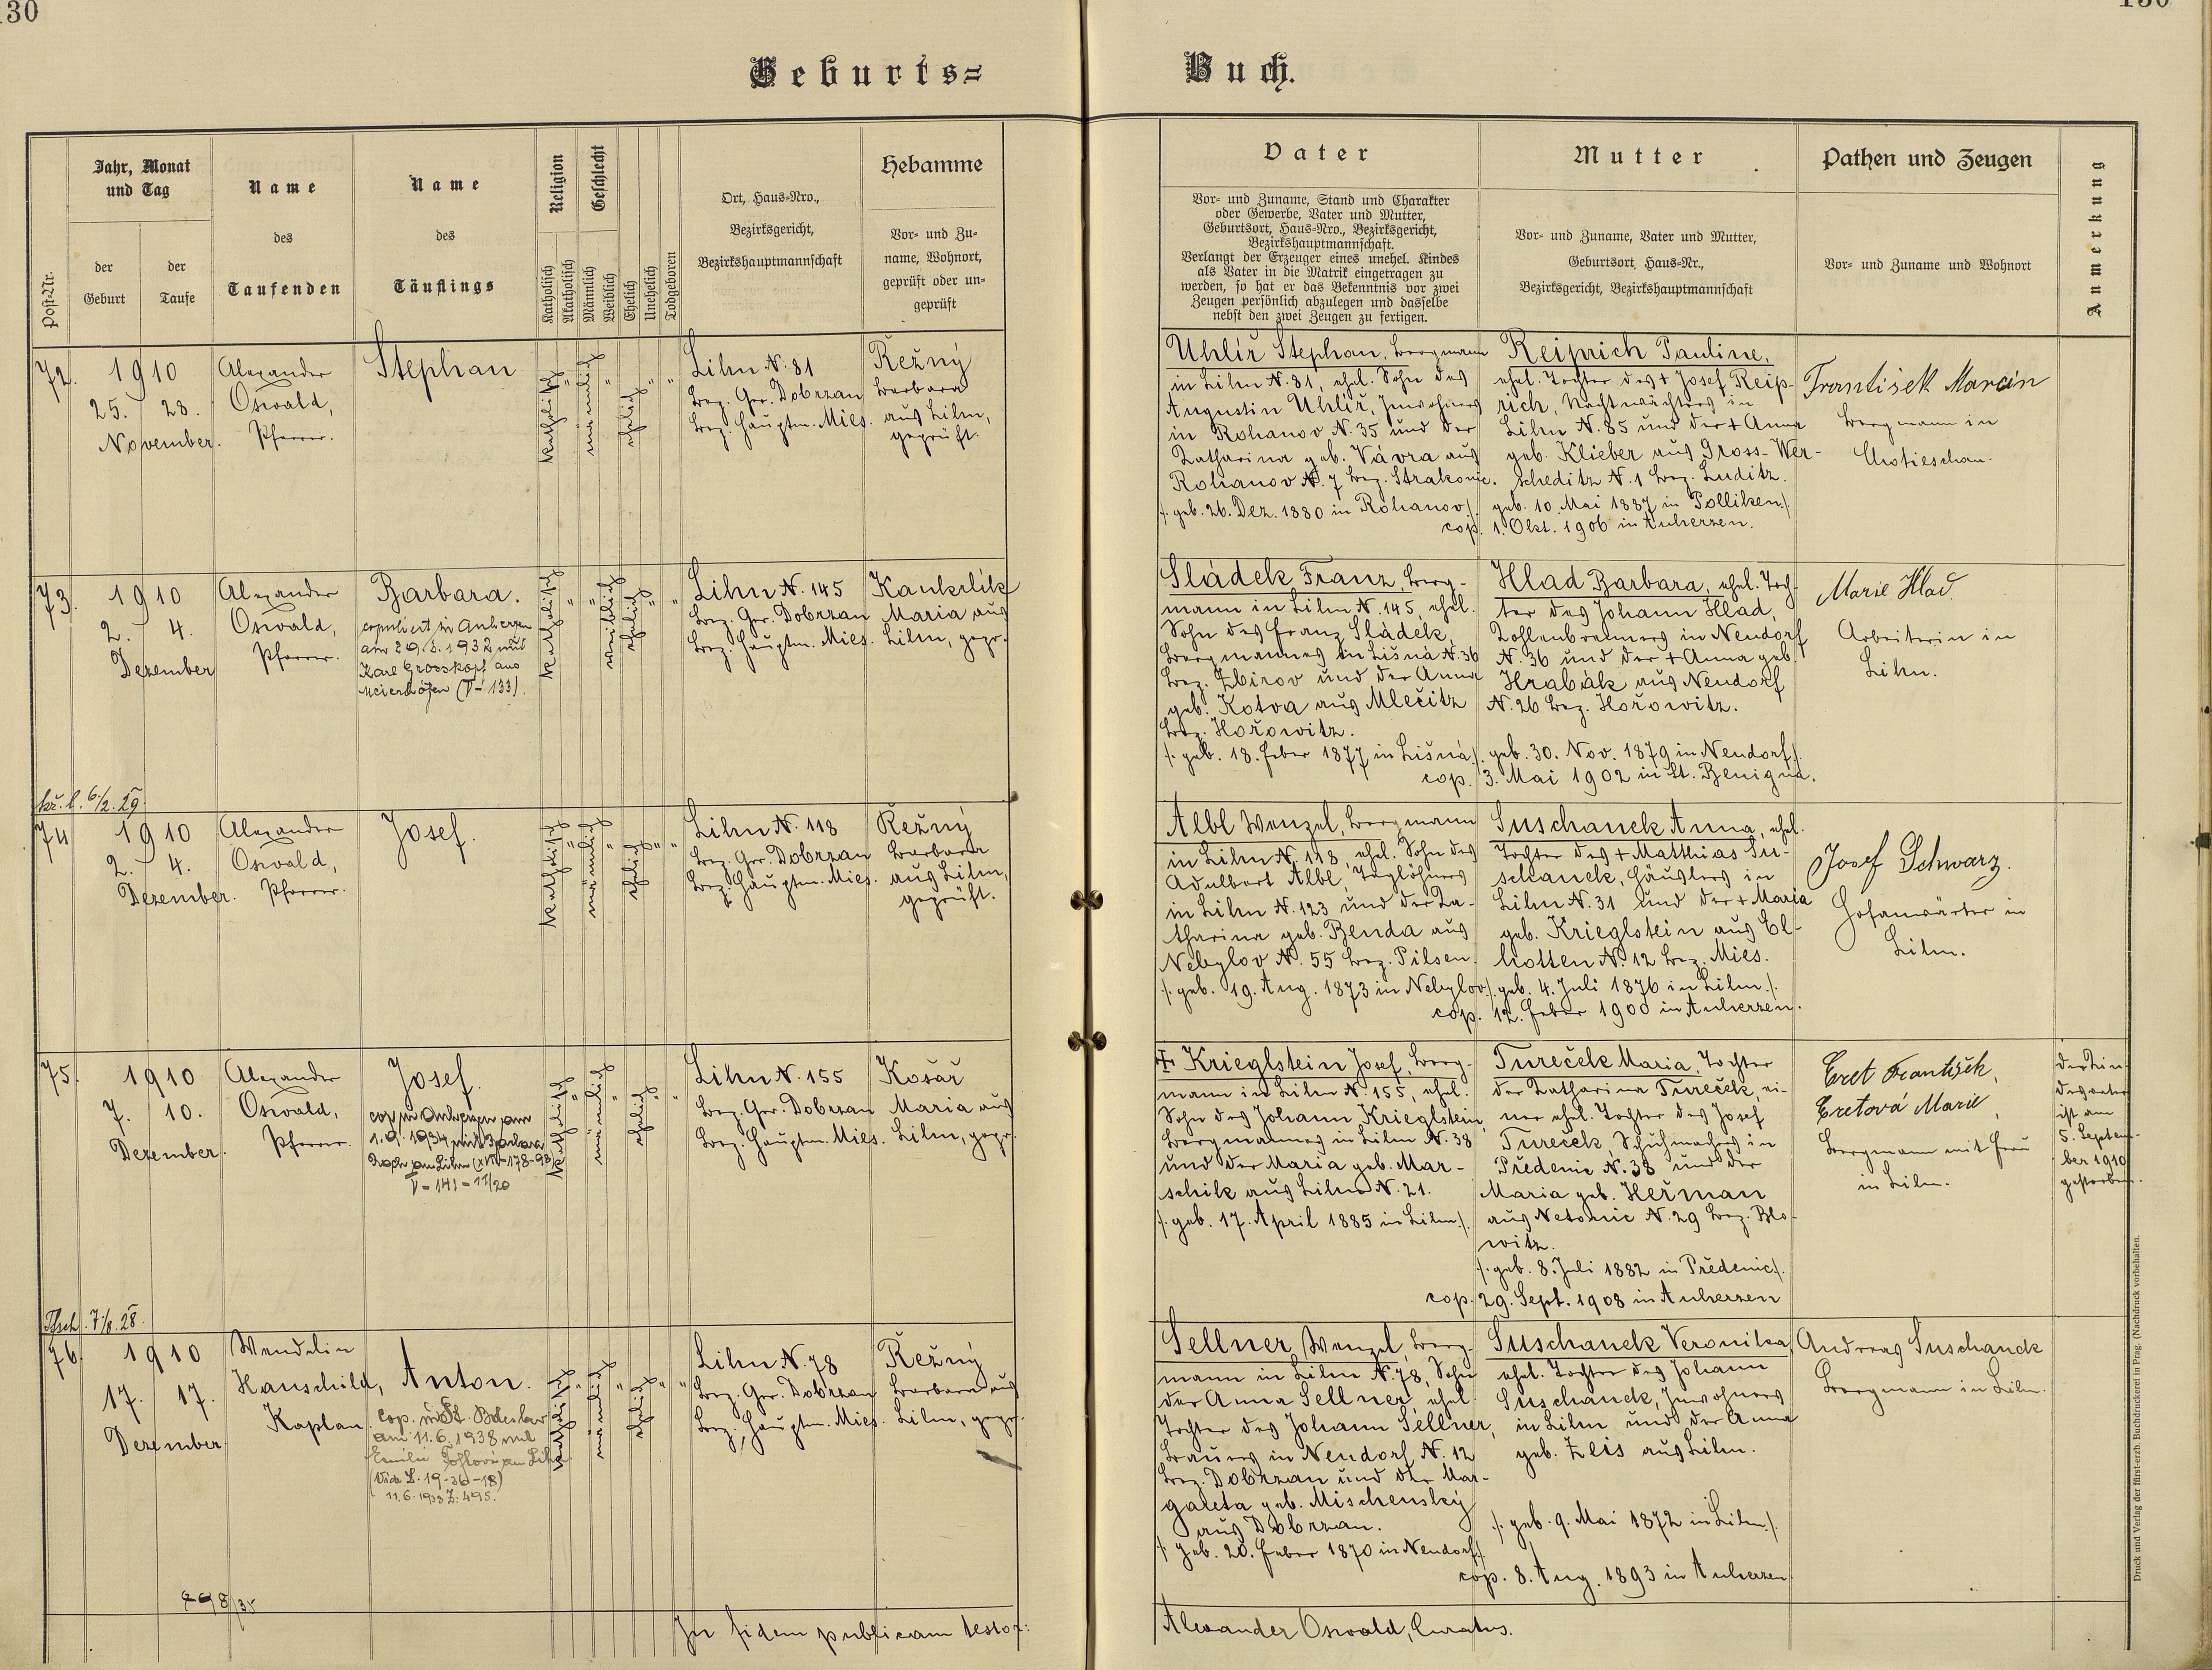 130
130
Geburts=
Buch.
Post-Nr.
Jahr, Monat
und Tag
der
Geburt
der
Taufe
Name
des
Taufenden
Name
des
Täuflings
Religion
Katholisch
Akatholisch
Geschlecht
Männlich
Weiblich
Ehelich
Unehelich
Todgeboren
Ort, Haus=Nro.,
Bezirksgericht,
Bezirkshauptmannschaft
Hebamme
Vor= und Zu=
name, Wohnort,
geprüft oder un=
geprüft
Vater
Vor= und Zuname, Stand und Charakter
oder Gewerbe, Vater und Mutter,
Geburtsort, Haus=Nro., Bezirksgericht,
Bezirkshauptmannschaft.
Verlangt der Erzeuger eines unehel. Kindes
als Vater in die Matrik eingetragen zu
werden, so hat er das Bekenntnis vor zwei
Zeugen persönlich abzulegen und dasselbe
nebst den zwei Zeugen zu fertigen.
Mutter
Vor= und Zuname, Vater und Mutter,
Geburtsort, Haus=Nr.,
Bezirksgericht, Bezirkshauptmannschaft
Pathen und Zeugen
Vor= und Zuname und Wohnort
Anmerkung
72.
1910
25. 28.
November.
Alexander
Oswald,
Pfarrer.
Stephan
katholisch " männlich " ehelich " "
Lihn N. 81
Bez. Ger. Dobrzan
Bez. Hauptm. Mies.
Režný
Barbara
aus Lihn,
geprüft.
Uhlíř Stephan, Bergmann
in Lihn N. 81, ehel. Sohn des
Augustin Uhlíř, Inwohners
in Rohanov N. 35 und der
Katharina geb. Vávra aus
Rohanov N. 7 Bez. Strakonic.
/: geb. 26. Dez. 1880 in Rohanov :/.
Reiprich Pauline,
ehel. Tochter des + Josef Reip-
rich, Nachtwächters in
Lihn N. 85 und der + Anna
geb. Klieber aus Gross-Wer-
scheditz N. 1 Bez. Luditz.
geb. 10. Mai 1887 in Polliken :/.
cop. 1. Okt. 1906 in Auherzen.
František Marcin
Bergmann in
Chotieschau.
73.
1910
2. 4.
Dezember
Alexander
Oswald,
Pfarrer.
Barbara.
copuliert in Auherzen
am 29.3.1932 mit
Karl Grosskopf aus
Meierhöfen (V-133).
katholisch " " weiblich ehelich " "
Lihn N. 145
Bez. Ger. Dobrzan
Bez. Hauptm. Mies.
Maria aus
Lihn, gepr.
Sládek Franz, Berg-
mann in Lihn N. 145, ehel.
Sohn des Franz Sládek,
Bergmannes in Lišná N. 36
Bez. Zbirov und der Anna
geb. Kotva aus Mlečitz
Bez. Hořowitz.
/: geb. 18. Feber 1877 in Lišná :/.
Hlad Barbara, ehel. Toch-
ter des Johann Hlad,
Kohlenbrenners in Neudorf
N. 36 und der + Anna geb.
Hrabák aus Neudorf
N. 26 Bez. Hořowitz.
geb. 30. Nov. 1879 in Neudorf :/.
cop. 3. Mai 1902 in St. Benigna.
Marie Hlad.
Arbeiterin in
Lihn.
kř. l. 6/2. 29.
74
1910
2. 4.
Dezember.
Alexander
Oswald,
Pfarrer.
Josef.
katholisch " männlich " ehelich " "
Lihn N. 118
Bez. Ger. Dobrzan
Bez. Hauptm. Mies.
Režný
Barbara
aus Lihn,
geprüft.
Albl Wenzel, Bergmann
in Lihn N. 118, ehel. Sohn des
Adalbert Albl, Taglöhners
in Lihn N. 123 und der Ka-
tharina geb. Benda aus
Nebylov N. 55 Bez. Pilsen.
/: geb. 19. Aug. 1873 in Nebylov :/.
Suschanek Anna, ehel.
Tochter des + Matthias Su-
schanek, Häuslers in
Lihn N. 31 und der + Maria
geb. Krieglstein aus El-
hotten N. 12 Bez. Mies.
geb. 4. Juli 1876 in Lihn :/.
cop. 12. Feber 1900 in Auherzen.
Josef Schwarz.
in
Lihn.
75.
1910
7. 10.
Dezember.
Alexander
Oswald,
Pfarrer.
Josef.
cop. in Auherzen am
1.9.1934 mit Barbara
aus Lihn
V-141-11/20
katholisch " männlich " ehelich " "
Lihn N. 155
Bez. Ger. Dobrzan
Bez. Hauptm. Mies.
Košař
Maria aus
Lihn, gepr.
+ Krieglstein Josef, Berg-
mann in Lihn N. 155, ehel.
Sohn des Johann Krieglstein,
Bergmannes in Lihn N. 38
und der Maria geb. Mar-
schik aus Lihn N. 21.
/: geb. 17. April 1885 in Lihn :/.
Tureček Maria, Tochter
der Katharina Tureček, ei-
ner ehel. Tochter des Josef
Tureček, Schuhmachers in
Předenic N. 38 und der
Maria geb. Heřman
aus Netonic N. 29 Bez. Blo-
witz.
/: geb. 8. Juli 1882 in Předenic :/.
cop. 29. Sept. 1908 in Auherzen
Eret František,
Eretová Marie,
Bergmann mit Frau
in Lihn.
ist am
5. Septem-
ber 1910
gestorben.
Tsch. 7/8. 28.
76.
1910
17. 17.
Dezember
Wendelin
Hauschild,
Kaplan.
Anton.
cop. in St. Boleslav
am 11.6.1938 mit
(Vide Z. 19-36-18)
11.6.1938 Z: 495.
katholisch " männlich " ehelich " "
Lihn N. 78
Bez. Ger. Dobrzan
Bez. Hauptm. Mies.
Režný
Barbara aus
Lihn, gepr.
Sellner Wenzel, Berg-
mann in Lihn N. 78, Sohn
der Anna Sellner, ehel.
Tochter des Johann Sellner,
Brauers in Neudorf N. 12
Bez. Dobrzan und der Mar-
gareta geb. Mischensky
aus Dobrzan.
/: geb. 20. Feber 1870 in Neudorf :/.
Suschanek Veronika
ehel. Tochter des Johann
Suschanek, Inwohners
in Lihn und der Anna
geb. Zeis aus Lihn.
/: geb. 9. Mai 1872 in Lihn :/.
cop. 8. Aug. 1893 in Auherzen.
Andreas Suschanek
Bergmann in Lihn.
In fidem publicam testor:
Alexander Oswald, Curatus.
Druck und Verlag der fürst-erzb. Buchdruckerei in Prag. (Nachdruck vorbehalten.